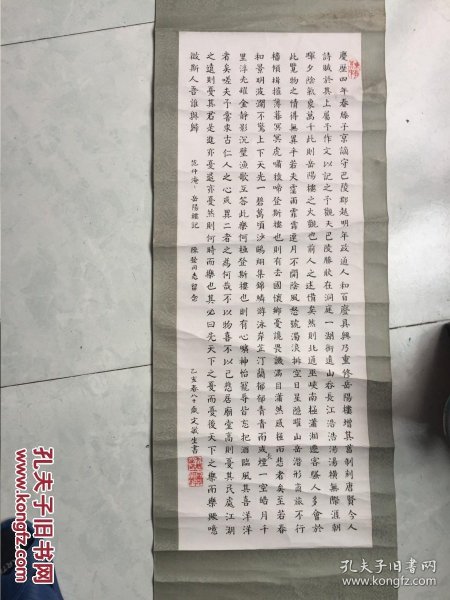 慶歷四年春滕子京謫守巴陵郡越明年政通人和百廢具興乃重修岳陽樓增其舊制刻唐賢今人
詩賦於其上屬予作文以記之予觀夫巴陵勝狀在洞庭一湖銜遠山吞長江浩浩湯湯橫無際涯朝
暉夕陰氣象萬千此則岳陽樓之大觀也前人之述備矣然則北通巫峽南極瀟湘遷客騷人多會於
此覽物之情得無異乎若夫霪雨霏霏連月不開陰風怒號濁浪排空日星隱曜山岳潛形商旅不行
檣傾楫摧薄暮冥冥虎嘯猿啼登斯樓也則有去國懷鄉憂讒畏譏滿目蕭然感極而悲者矣至若春
和景明波瀾不驚上下天光一碧萬頃沙鷗翔集錦鱗游泳岸芷汀蘭郁郁青青而或長煙一空皓月千
里浮光耀金靜影沉璧漁歌互答此樂何極登斯樓也則有心曠神怡寵辱皆忘把酒臨風其喜洋洋
者矣嗟夫予嘗求古仁人之心或異二者之為何哉不以物喜不以己悲居廟堂高則憂其民處江湖
之遠則憂其君是進亦憂退亦憂然則何時而樂也其必曰先天下之憂而憂後天下之樂而樂歟噫
微斯人吾誰與歸
范仲淹 岳陽樓記
同志留念
乙亥春八十歲文敏生書
孔夫子旧书网
孔夫子旧书网